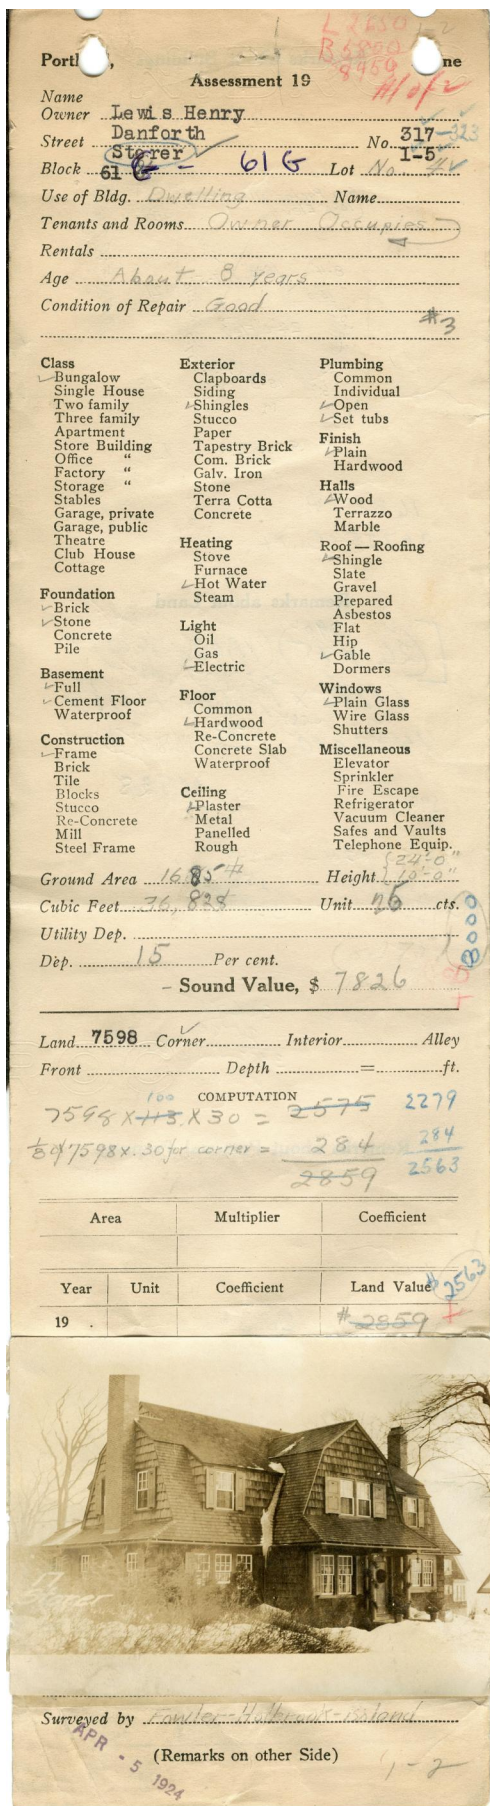 L 2650 1-2
B 5800
8450
#1 of 2
Portl , ne
Assessment 19
Name
Owner Lewis Henry
Danforth 317-323
Street Storer No. 1-5
Block 61 G - 61 G Lot No. 4
Use of Bldg. Dwelling Name
Tenants and Rooms Owner Occupies
Rentals
Age About 8 years
Condition of Repair Good
#3
Class
Bungalow
Single House
Two family
Three family
Apartment
Store Building
Office "
Factory "
Storage "
Stables
Garage, private
Garage, public
Theatre
Club House
Cottage
Foundation
Brick
Stone
Concrete
Pile
Basement
Full
Cement Floor
Waterproof
Construction
Frame
Brick
Tile
Blocks
Stucco
Re-Concrete
Mill
Steel Frame
Exterior
Clapboards
Siding
Shingles
Stucco
Paper
Tapestry Brick
Com. Brick
Galv. Iron
Stone
Terra Cotta
Concrete
Heating
Stove
Furnace
Hot Water
Steam
Light
Oil
Gas
Electric
Floor
Common
Hardwood
Re-Concrete
Concrete Slab
Waterproof
Ceiling
Plaster
Metal
Panelled
Rough
Plumbing
Common
Individual
Open
Set tubs
Finish
Plain
Hardwood
Halls
Wood
Terrazzo
Marble
Roof — Roofing
Shingle
Slate
Gravel
Prepared
Asbestos
Flat
Hip
Gable
Dormers
Windows
Plain Glass
Wire Glass
Shutters
Miscellaneous
Elevator
Sprinkler
Fire Escape
Refrigerator
Vacuum Cleaner
Safes and Vaults
Telephone Equip.
24'-0"
Ground Area 1685 # Height 10'-0"
Cubic Feet 36,828 Unit 25 cts.
Utility Dep.
8000
Dep. 15 Per cent.
- Sound Value, $ 7826
Land 7598 Corner Interior Alley
Front Depth = ft.
COMPUTATION
7598 X 113 100 X 30 = 2575 2279
1/8 of 7598 x .30 for corner = 284 284
2859 2563
Area Multiplier Coefficient
Year Unit Coefficient Land Value $2563
19 . $2859
Surveyed by Fowler-Holbrook-Island
APR - 5 1924
(Remarks on other Side)
1-2